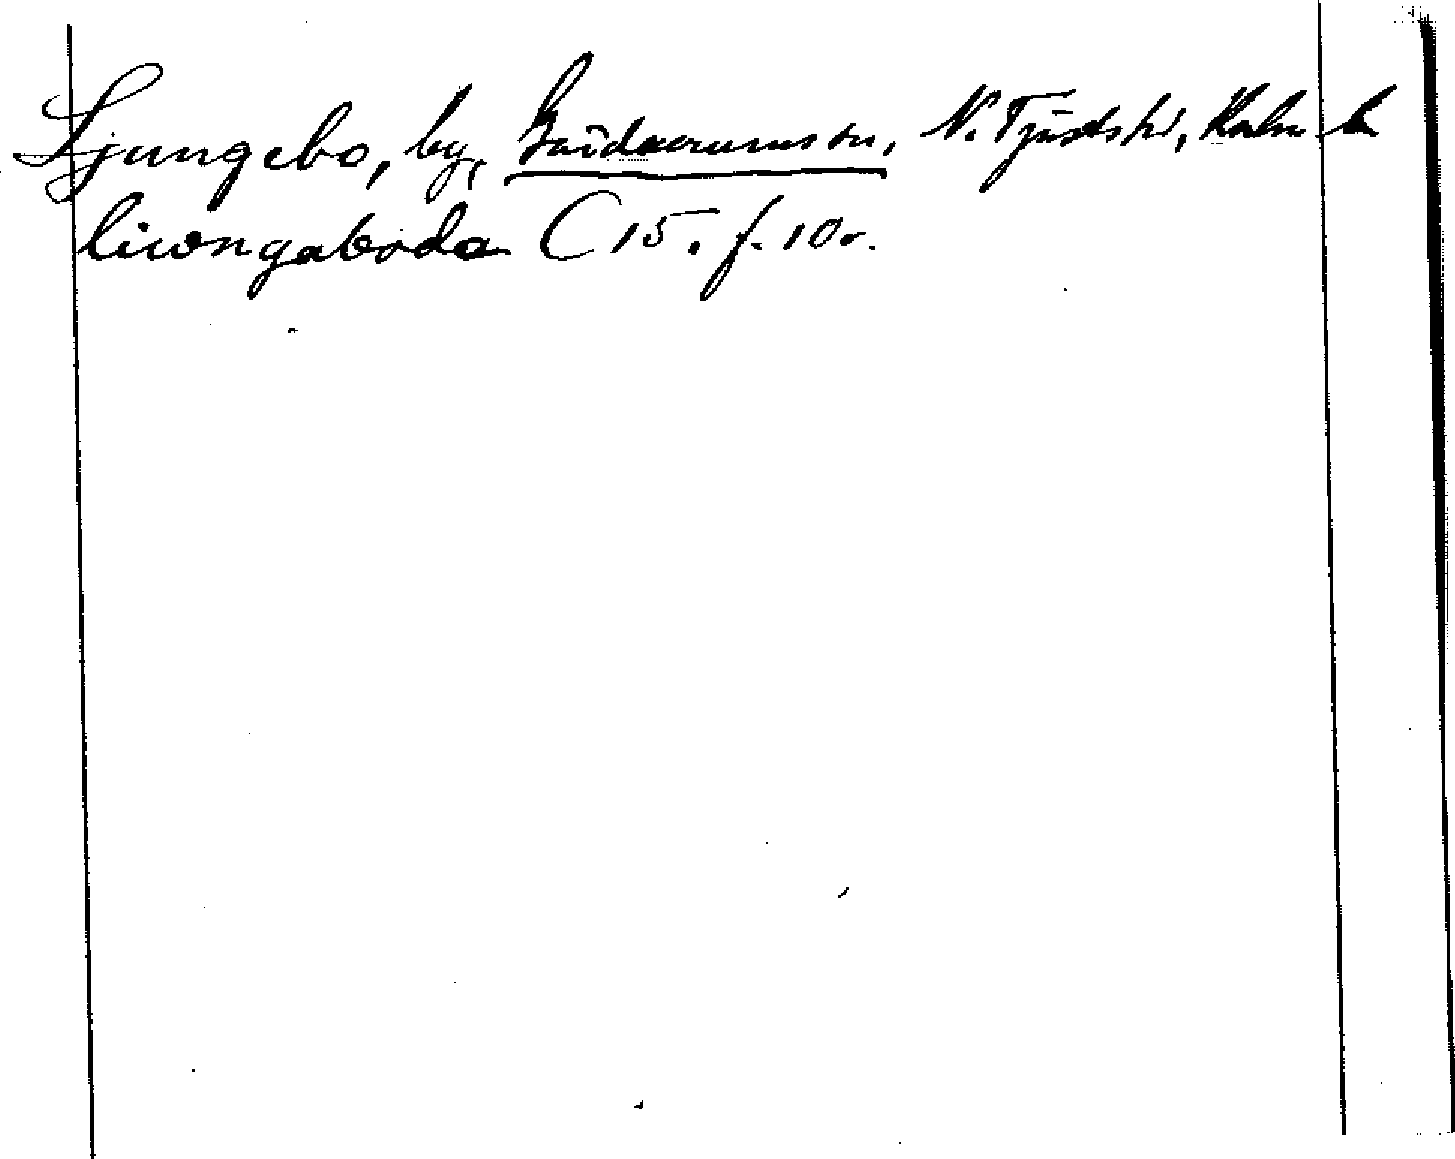 Ljungebo, by, Gärdserums sn, N. Tjusts hd, Kalm. l.
liwngaboda C 15. f. 10r.